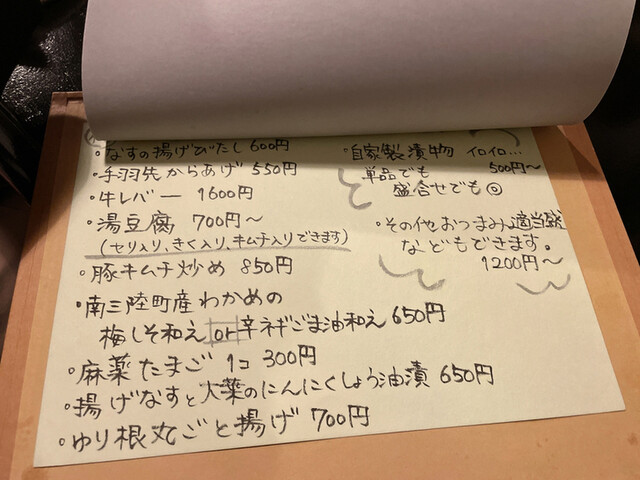 ・なすの揚げびたし 600円
・手羽先からあげ 550円
・牛レバー 1600円
・湯豆腐 700円～
(セリ入り、きく入り、キムチ入りできます)
・豚キムチ炒め 850円
・南三陸町産わかめの
梅しそ和え or 辛ネギごま油和え 650円
・麻薬たまご 1コ 300円
・揚げなすと大葉のにんにくしょう油漬 650円
・ゆり根丸ごと揚げ 700円
・自家製漬物 イロイロ…
単品でも 500円～
盛合せでも◎
・その他おつまみ適当盛
などもできます。
1200円～